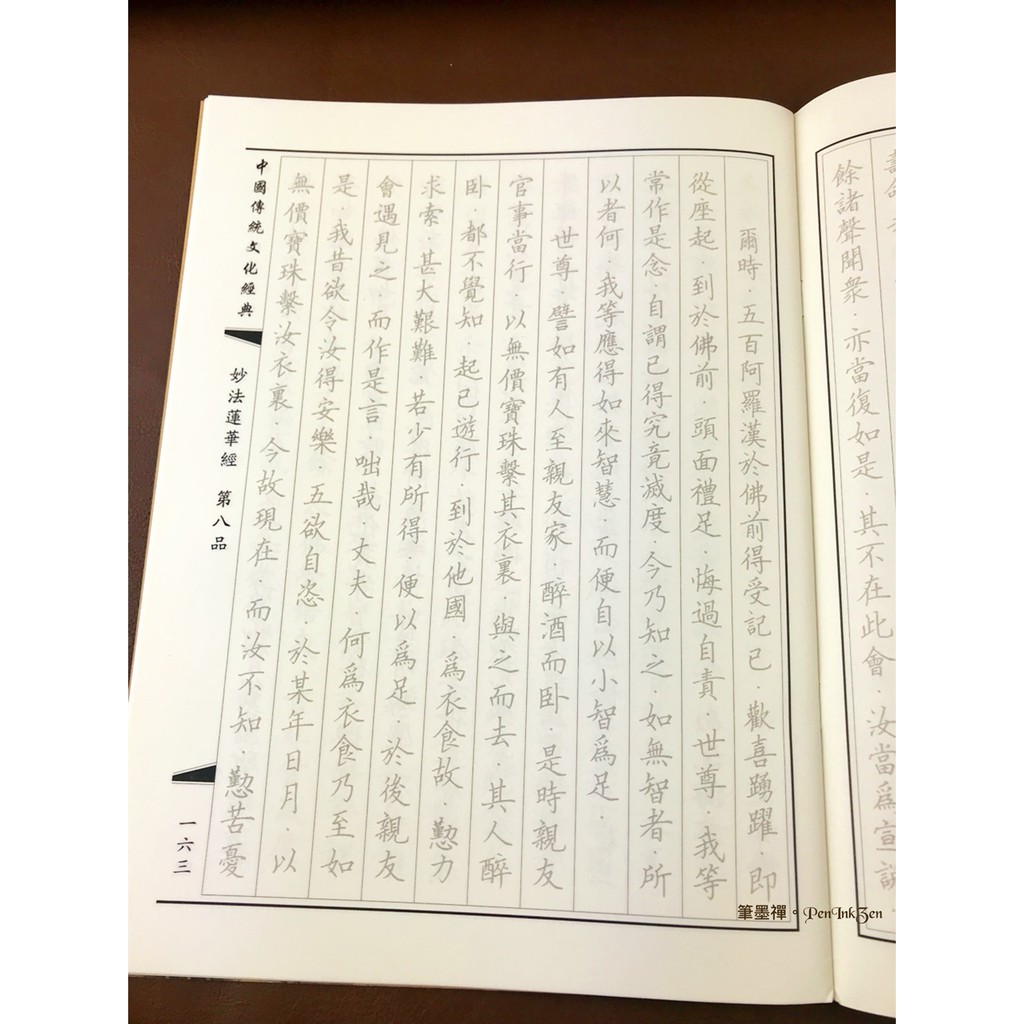 餘諸聲聞眾．亦當復如是．其不在此會．汝當爲宣說
爾時．五百阿羅漢於佛前得受記已．歡喜踴躍．即
從座起．到於佛前．頭面禮足．悔過自責．世尊．我等
常作是念．自謂已得究竟滅度．今乃知之．如無智者．所
以者何．我等應得如來智慧．而便自以小智爲足．
世尊．譬如有人至親友家．醉酒而卧．是時親友
官事當行．以無價寶珠繫其衣裏．與之而去．其人醉
卧．都不覺知．起已遊行．到於他國．爲衣食故．懃力
求索．甚大艱難．若少有所得．便以爲足．於後親友
會遇見之．而作是言．咄哉．丈夫．何爲衣食乃至如
是．我昔欲令汝得安樂．五欲自恣．於某年日月．以
無價寶珠繫汝衣裏．今故現在．而汝不知．懃苦憂
中國傳統文化經典
妙法蓮華經 第八品
一六三
筆墨禪。PenInkZen